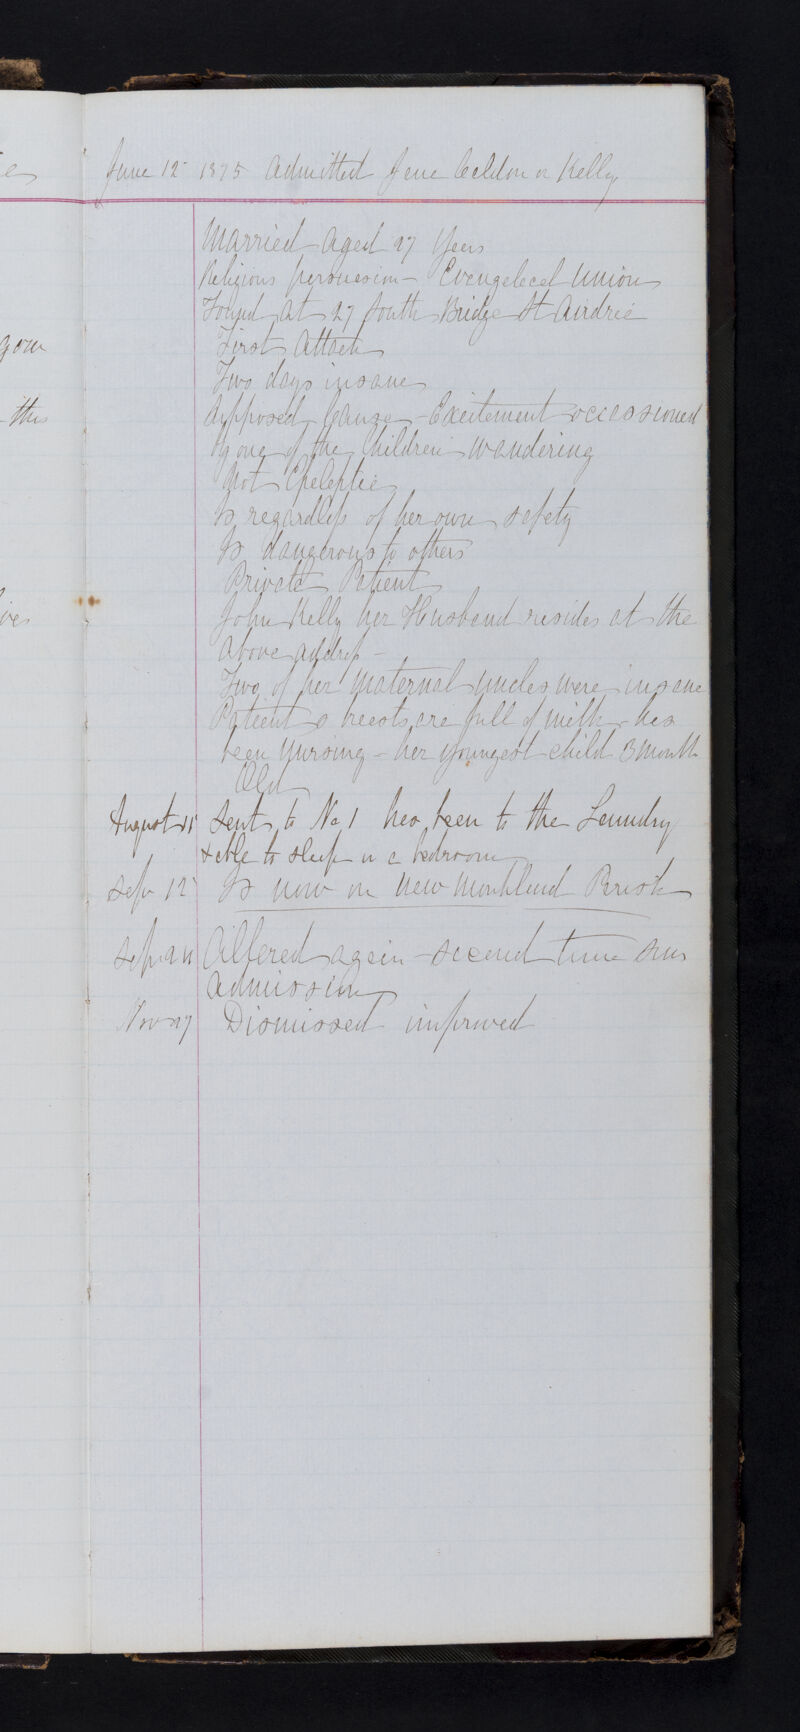 June 12 1875 Admitted Jane or Kelly
Married Aged 27 Years
Religious persuasion - Evangelecal Union
Found at 27 South Bridge St Airdrie
First Attack
Two days insane
Supposed Cause - Excitement occassioned
by one of the Children wandering
Not Epeleptic
Is regardless of her own safety
Is dangerous to others
Private Patient
John Kelly her Husband resides at the
above address -
Two of her Maternal uncles were insane
Patient s breasts are full of milk - has
been Nursing - her youngest child 3 month
Old
August sent to No 1 has been to the Laundry
& able to sleep in a bedroom
Sep 12 Is now on New Monkland Parish
again - second time
admission
Nov 27 Dismissed improved
gow
this